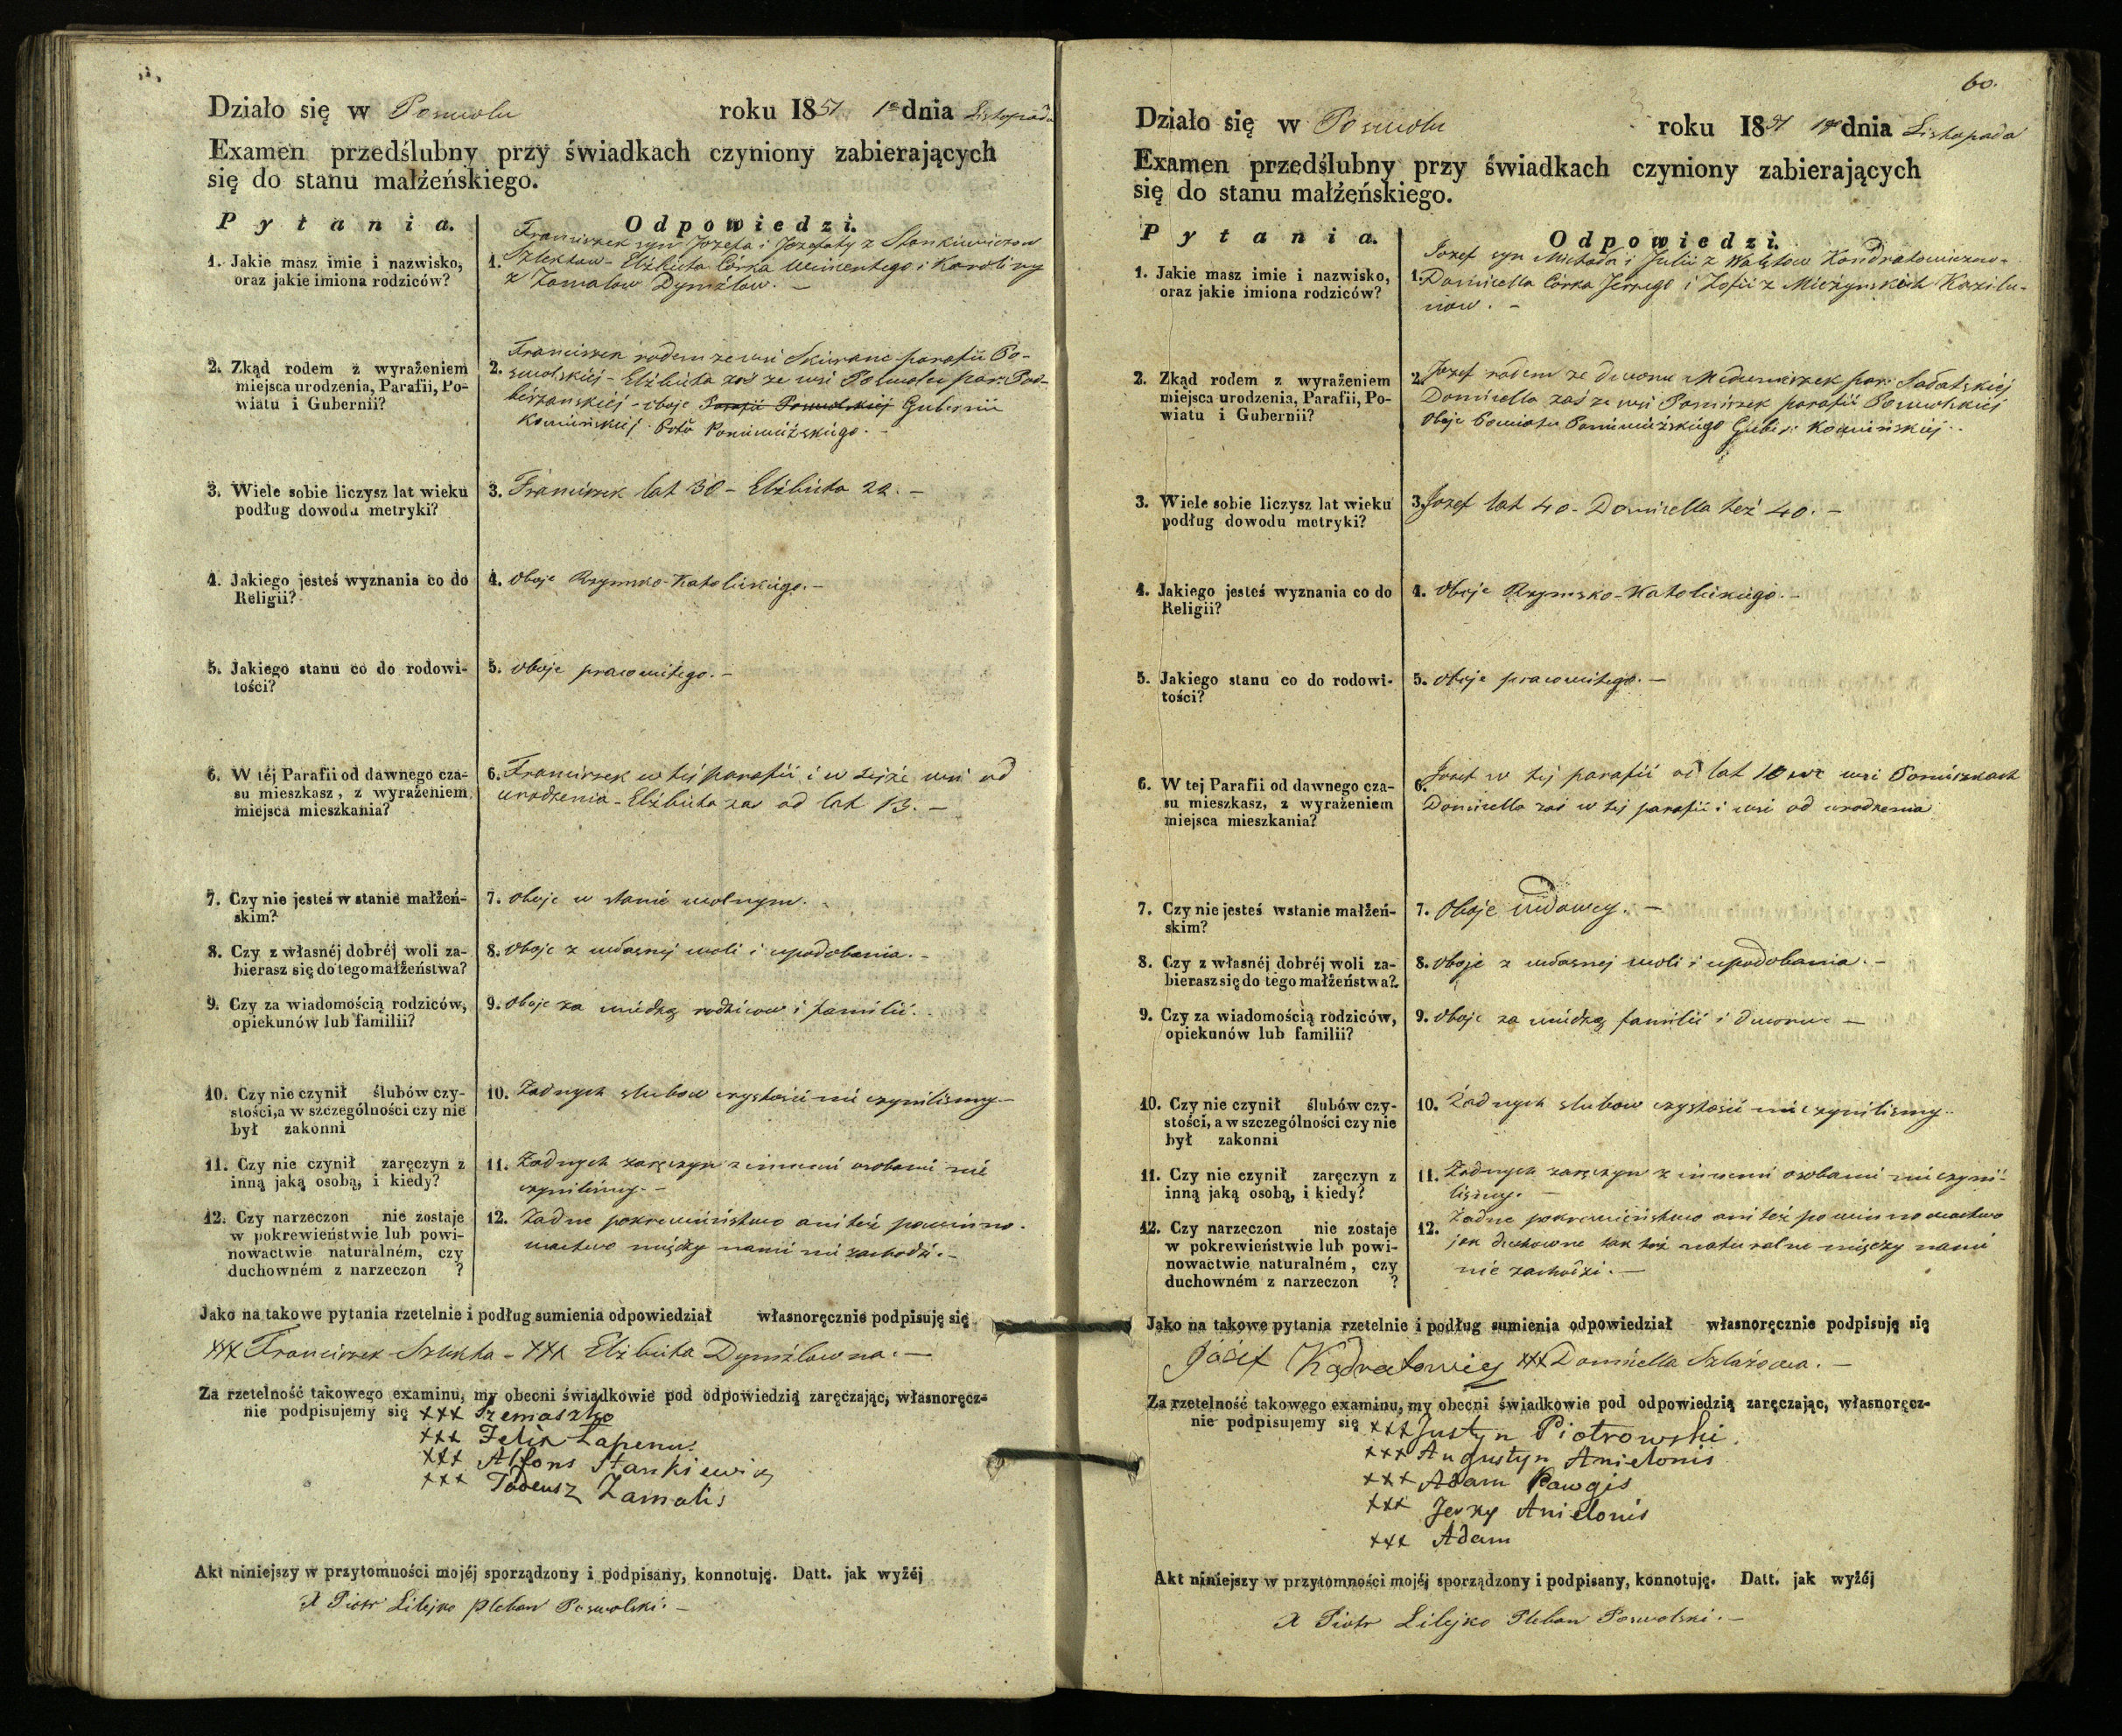 Działo się w Poswolu roku 1851 1go dnia Listopada
Examen przedślubny przy świadkach czyniony zabierających
się do stanu małżeńskiego.
Pytania. Odpowiedzi.
1. Jakie masz imie i nazwisko,
oraz jakie imiona rodziców?
Franciszek syn Jozefa i Jozefaty z Stankiewiczow
1. Szlektow - Elżbieta Córka Wincentego i Karoliny
z Zamalow Dymżlow. -
2. Zkąd rodem z wyrażeniem
miejsca urodzenia, Parafii, Po-
wiatu i Gubernii?
2. Franciszek rodem ze wsi Skirane parafii Po-
swolskiej - Elżbieta zaś ze wsi par: Pod-
birżanskiej - oboje Parafii Poswolskiej Gubernii
Kowieńskiej Pottu Poniewieżskiego. -
3. Wiele sobie liczysz lat wieku
podług dowodu metryki?
3. Franciszek lat 30 - Elżbieta 22. -
4. Jakiego jesteś wyznania co do
Religii?
4. Oboje Rzymsko-Katolickiego. -
5. Jakiego stanu co do rodowi-
tości?
5. Oboje pracowitego. -
6. W téj Parafii od dawnego cza-
su mieszkasz, z wyrażeniem
miejsca mieszkania?
6. Franciszek w tej parafii i w tejże wsi od
urodzenia - Elżbieta zaś od lat 13. -
7. Czy nie jesteś w stanie małżeń-
skim?
7. Oboje w stanie wolnym.
8. Czy z własnéj dobréj woli za-
bierasz się do tego małżeństwa?
8. Oboje z własnej woli i upodobania. -
9. Czy za wiadomością rodziców,
opiekunów lub familii?
9. Oboje za wiedzą rodzicow i familii.
10. Czy nie czynił ślubów czy-
stości, a w szczególności czy nie
był zakonni
10. Żadnych slubow czystości nie czynilismy -
11. Czy nie czynił zaręczyn z
inną jaką osobą, i kiedy?
11. Żadnych zaręczyn z innemi osobami nie
czynilismy. -
12. Czy narzeczon nie zostaje
w pokrewieństwie lub powi-
nowactwie naturalném, czy
duchowném z narzeczon ?
12. Żadne pokrewieństwo ani też powinno-
wactwo między nami nie zachodzi. -
Jako na takowe pytania rzetelnie i podług sumienia odpowiedział własnoręcznie podpisuję się
XXX Franciszek Szlekta - XXX Elżbieta Dymżlowna. -
Za rzetelność takowego examinu, my obecni świadkowie pod odpowiedzią zaręczając, własnoręcz-
nie podpisujemy się xxx Szemaszko
xxx Felix Łapenu.
xxx Alfons Stankiewicz
xxx Tadeusz Zamalis
Akt niniejszy w przytomności mojéj sporządzony i podpisany, konnotuję. Datt. jak wyżéj
X Piotr Lilejko Pleban Poswolski. -
60.
Działo się w Poswolu roku 1851 1go dnia Listopada
Examen przedślubny przy świadkach czyniony zabierających
się do stanu małżeńskiego.
Pytania. Odpowiedzi.
1. Jakie masz imie i nazwisko,
oraz jakie imiona rodziców?
Jozef syn Michała i Julii z Kondratowiczow -
1. Domicella Córka Jerzego i Zofii z Mieżynskich Kazilu-
now. -
2. Zkąd rodem z wyrażeniem
miejsca urodzenia, Parafii, Po-
wiatu i Gubernii?
2. Jozef rodem ze dworu par: Sałatskiej
Domicella zaś ze wsi Pomirzek parafii Poswolskiej
Oboje Powiatu Poniewieżskiego Guber: Kowieńskiej. -
3. Wiele sobie liczysz lat wieku
podług dowodu metryki?
3. Jozef lat 40 - Domicella też 40. -
4. Jakiego jesteś wyznania co do
Religii?
4. Oboje Rzymsko-Katolickiego. -
5. Jakiego stanu co do rodowi-
tości?
5. Oboje pracowitego. -
6. W tej Parafii od dawnego cza-
su mieszkasz, z wyrażeniem
miejsca mieszkania?
6. Jozef w tej parafii od lat 10 we wsi Pomirzkach
Domicella zaś w tej parafii i wsi od urodzenia
7. Czy nie jesteś wstanie małżeń-
skim?
7. Oboje wdowcy. -
8. Czy z własnéj dobréj woli za-
bierasz się do tego małżeństwa?
8. Oboje z własnej woli i upodobania. -
9. Czy za wiadomością rodziców,
opiekunów lub familii?
9. Oboje za wiedzą familii i dworu -
10. Czy nie czynił ślubów czy-
stości, a w szczególności czy nie
był zakonni
10. Żadnych slubow czystości nie czynilismy.
11. Czy nie czynił zaręczyn z
inną jaką osobą, i kiedy?
11. Żadnych zaręczyn z innemi osobami nie czyni-
lismy. -
12. Czy narzeczon nie zostaje
w pokrewieństwie lub powi-
nowactwie naturalném, czy
duchowném z narzeczon ?
12. Żadne pokrewieństwo ani też powinnowactwo
jak duchowne tak też naturalne między nami
nie zachodzi. -
Jako na takowe pytania rzetelnie i podług sumienia odpowiedział własnoręcznie podpisuję się
Józef Kądratowicz xxx Domicella Szlażowa. -
Za rzetelność takowego examinu, my obecni świadkowie pod odpowiedzią zaręczając, własnoręcz-
nie podpisujemy się xxx Justyn Piotrowski.
xxx Augustyn Anielonis
xxx Adam Rawgis
xxx Jerzy Anielonis
xxx Adam
Akt niniejszy w przytomności mojéj sporządzony i podpisany, konnotuję. Datt. jak wyżéj
X Piotr Lilejko Pleban Poswolski. -